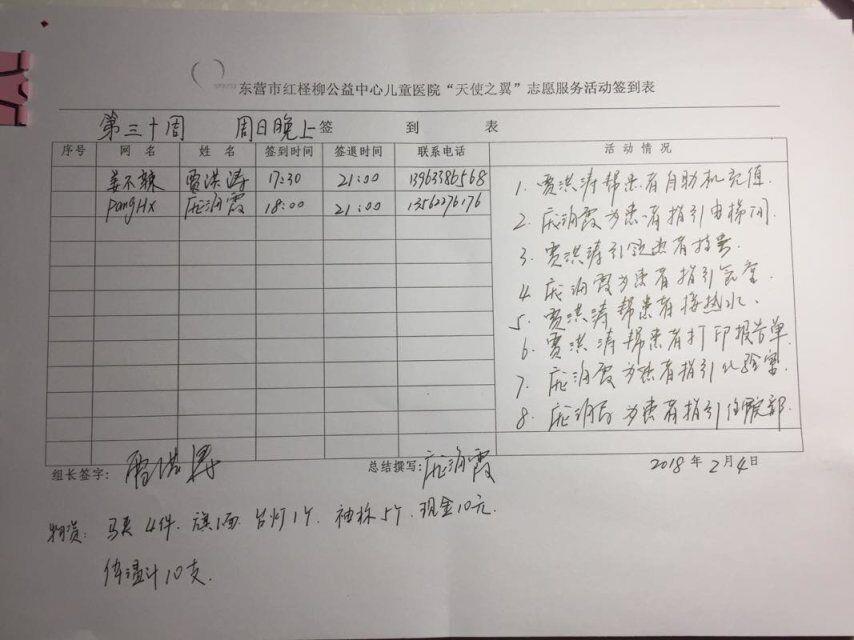 东营市红柽柳公益中心儿童医院“天使之翼”志愿服务活动签到表
第三十周 周日晚上 签 到 表
序号 网 名 姓 名 签到时间 签退时间 联系电话 活 动 情 况
姜不辣 贾洪涛 17:30 21:00 13963386568
PangHx 庞海霞 18:00 21:00 13562276176
1. 贾洪涛帮患者自助机充值.
2. 庞海霞为患者指引电梯间.
3. 贾洪涛引领患者挂号.
4. 庞海霞为患者指引食堂.
5. 贾洪涛帮患者接热水.
6. 贾洪涛帮患者打印报告单.
7. 庞海霞为患者指引化验室.
8. 庞海霞为患者指引住院部.
组长签字: 贾洪涛 总结撰写: 庞海霞 2018 年 2 月 4 日
物资: 马夹4件. 旗1面. 台灯1个. 袖标5个. 现金10元.
体温计10支.